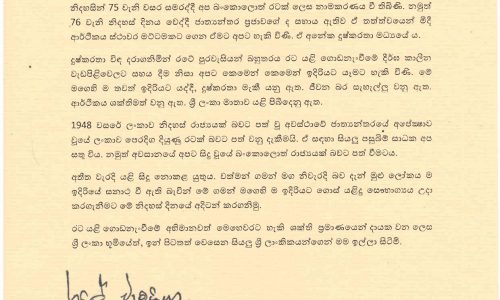 නිදහසින් 75 වැනි වසර සමරද්දී අප බංකොලොත් රටක් ලෙස නාමකරණය වී තිබිණි. නමුත්
76 වැනි නිදහස් දිනය වෙද්දී ජාත්‍යන්තර ප්‍රජාවගේ ද සහාය ඇතිව ඒ තත්ත්වයෙන් මිදී
ආර්ථිකය ස්ථාවර මට්ටමකට ගෙන ඒමට අපට හැකි විණි. ඒ අනේක දුෂ්කරතා මධ්‍යයේ ය.
දුෂ්කරතා විඳ දරාගනිමින් රටේ පුරවැසියන් බහුතරය රට යළි ගොඩනැංවීමේ දීර්ඝ කාලීන
වැඩපිළිවෙලට සහය දීම නිසා අපට කෙමෙන් කෙමෙන් ඉදිරියට යෑමට හැකි විණි. මේ
මගෙහි ම තවත් ඉදිරියට යද්දී, දුෂ්කරතා මැකී යනු ඇත. ජීවන බර සැහැල්ලු වනු ඇත.
ආර්ථිකය ශක්තිමත් වනු ඇත. ශ්‍රී ලංකා මාතාව යළි පිබිදෙනු ඇත.
1948 වසරේ ලංකාව නිදහස් රාජ්‍යයක් බවට පත් වූ අවස්ථාවේ ජාත්‍යන්තරයේ අපේක්ෂාව
වූයේ ලංකාව පෙරදිග දියුණු රටක් බවට පත් වනු දැකීමයි. ඒ සඳහා සියලු පසුබිම් සාධක අප
සතු විය. නමුත් අවසානයේ අපට සිදු වූයේ බංකොලොත් රාජ්‍යයක් බවට පත් වීමටය.
අතීත වැරදි යළි සිදු නොකළ යුතුය. වත්මන් ගමන් මග නිවැරදි බව දැන් මුළු ලෝකය ම
ඉදිරියේ සනාථ වී ඇති බැවින් මේ ගමන් මගෙහි ම ඉදිරියට ගොස් යළිදු සෞභාග්‍යය උදා
කරගැනීමට මේ නිදහස් දිනයේ අදිටන් කරගනිමු.
රට යළි ගොඩනැංවීමේ අභිමානවත් මෙහෙවරට හැකි ශක්ති ප්‍රමාණයෙන් දායක වන ලෙස
ශ්‍රී ලංකා භූමියේත්, ඉන් පිටතත් වෙසෙන සියලු ශ්‍රී ලාංකිකයන්ගෙන් මම ඉල්ලා සිටිමි.